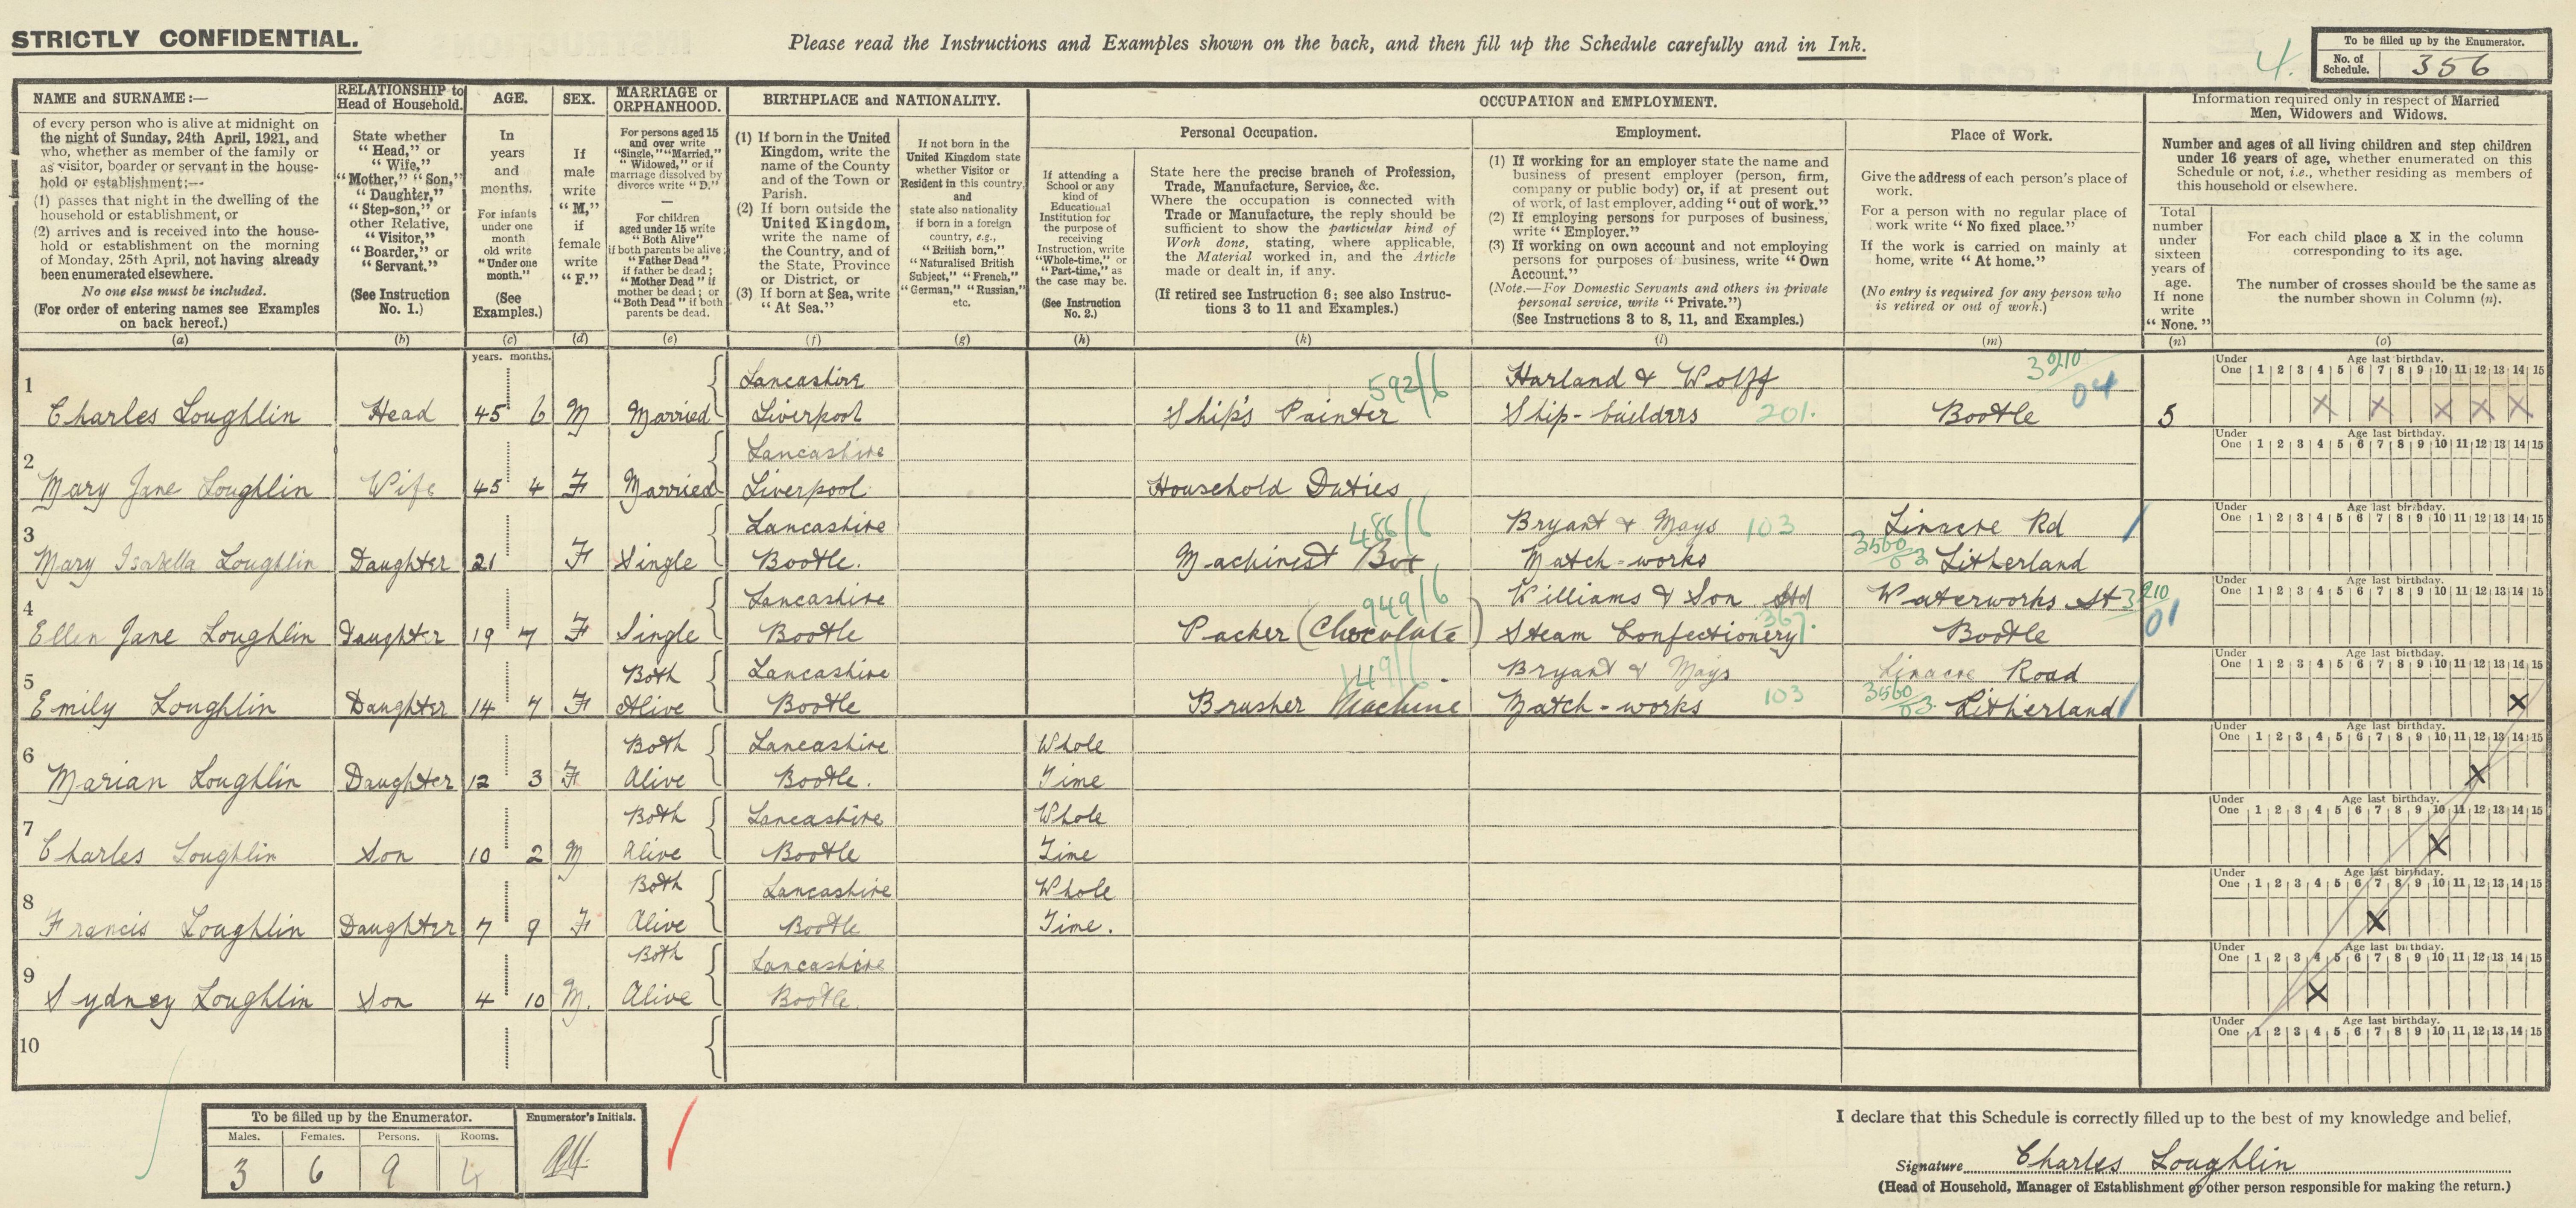 STRICTLY CONFIDENTIAL.
Please read the Instructions and Examples shown on the back, and then fill up the Schedule carefully and in Ink.
4.
To be filled up by the Enumerator.
No. of Schedule. 356
NAME and SURNAME:—
of every person who is alive at midnight on
the night of Sunday, 24th April, 1921, and
who, whether as member of the family or
as visitor, boarder or servant in the house-
hold or establishment:—
(1) passes that night in the dwelling of the
household or establishment, or
(2) arrives and is received into the house-
hold or establishment on the morning
of Monday, 25th April, not having already
been enumerated elsewhere.
No one else must be included.
(For order of entering names see Examples
on back hereof.)
(a)
RELATIONSHIP to
Head of Household.
State whether
"Head," or
"Wife,"
"Mother," "Son,"
"Daughter,"
"Step-son," or
other Relative,
"Visitor,"
"Boarder," or
"Servant."
(See Instruction
No. 1.)
(b)
AGE.
In
years
and
months.
For infants
under one
month
old write
"Under one
month."
(See
Examples.)
(c)
years. months.
SEX.
If
male
write
"M,"
if
female
write
"F."
(d)
MARRIAGE or
ORPHANHOOD.
For persons aged 15
and over write
"Single," "Married,"
"Widowed," or if
marriage dissolved by
divorce write "D."
—
For children
aged under 15 write
"Both Alive"
if both parents be alive;
"Father Dead"
if father be dead;
"Mother Dead" if
mother be dead; or
"Both Dead" if both
parents be dead.
(e)
BIRTHPLACE and NATIONALITY.
(1) If born in the United
Kingdom, write the
name of the County
and of the Town or
Parish.
(2) If born outside the
United Kingdom,
write the name of
the Country, and of
the State, Province
or District, or
(3) If born at Sea, write
"At Sea."
(f)
If not born in the
United Kingdom state
whether Visitor or
Resident in this country,
and
state also nationality
if born in a foreign
country, e.g.,
"British born,"
"Naturalised British
Subject," "French,"
"German," "Russian,"
etc.
(g)
OCCUPATION and EMPLOYMENT.
If attending a
School or any
kind of
Educational
Institution for
the purpose of
receiving
Instruction, write
"Whole-time," or
"Part-time," as
the case may be.
(See Instruction
No. 2.)
(h)
Personal Occupation.
State here the precise branch of Profession,
Trade, Manufacture, Service, &c.
Where the occupation is connected with
Trade or Manufacture, the reply should be
sufficient to show the particular kind of
Work done, stating, where applicable,
the Material worked in, and the Article
made or dealt in, if any.
(If retired see Instruction 6; see also Instruc-
tions 3 to 11 and Examples.)
(k)
Employment.
(1) If working for an employer state the name and
business of present employer (person, firm,
company or public body) or, if at present out
of work, of last employer, adding "out of work."
(2) If employing persons for purposes of business,
write "Employer."
(3) If working on own account and not employing
persons for purposes of business, write "Own
Account."
(Note.—For Domestic Servants and others in private
personal service, write "Private.")
(See Instructions 3 to 8, 11, and Examples.)
(l)
Place of Work.
Give the address of each person's place of
work.
For a person with no regular place of
work write "No fixed place."
If the work is carried on mainly at
home, write "At home."
(No entry is required for any person who
is retired or out of work.)
(m)
Information required only in respect of Married
Men, Widowers and Widows.
Number and ages of all living children and step children
under 16 years of age, whether enumerated on this
Schedule or not, i.e., whether residing as members of
this household or elsewhere.
Total
number
under
sixteen
years of
age.
If none
write
"None."
(n)
For each child place a X in the column
corresponding to its age.
The number of crosses should be the same as
the number shown in Column (n).
(o)
Under One Age last birthday. 1 2 3 4 5 6 7 8 9 10 11 12 13 14 15
Lancashire 592/6 Harland & Wolff 3210/04
1 Charles Loughlin Head 45 6 M Married Liverpool Ship's Painter Ship-builders 201. Bootle 5 X X X X X
Under One Age last birthday. 1 2 3 4 5 6 7 8 9 10 11 12 13 14 15
Lancashire
2 Mary Jane Loughlin Wife 45 4 F Married Liverpool Household Duties
Under One Age last birthday. 1 2 3 4 5 6 7 8 9 10 11 12 13 14 15
Lancashire 486/6 Bryant & Mays 103 Linacre Rd
3 Mary Isabella Loughlin Daughter 21 F Single Bootle. Machinest Box Match-works 3560/03 Litherland
Under One Age last birthday. 1 2 3 4 5 6 7 8 9 10 11 12 13 14 15
Lancashire 949/6 Williams & Son Ltd Waterworks St 3210/01
4 Ellen Jane Loughlin Daughter 19 7 F Single Bootle Packer (Chocolate) Steam Confectionery 367. Bootle
Under One Age last birthday. 1 2 3 4 5 6 7 8 9 10 11 12 13 14 15
Both Lancashire 149/6 Bryant & Mays Linacre Road
5 Emily Loughlin Daughter 14 7 F Alive Bootle Brusher Machine Match-works 103 3560/03 Litherland X
Under One Age last birthday. 1 2 3 4 5 6 7 8 9 10 11 12 13 14 15
Both Lancashire Whole
6 Marian Loughlin Daughter 12 3 F Alive Bootle. Time X
Under One Age last birthday. 1 2 3 4 5 6 7 8 9 10 11 12 13 14 15
Both Lancashire Whole
7 Charles Loughlin Son 10 2 M Alive Bootle Time X
Under One Age last birthday. 1 2 3 4 5 6 7 8 9 10 11 12 13 14 15
Both Lancashire Whole
8 Francis Loughlin Daughter 7 9 F Alive Bootle Time. X
Under One Age last birthday. 1 2 3 4 5 6 7 8 9 10 11 12 13 14 15
Both Lancashire
9 Sydney Loughlin Son 4 10 M. Alive Bootle. X
Under One Age last birthday. 1 2 3 4 5 6 7 8 9 10 11 12 13 14 15
10
To be filled up by the Enumerator. Enumerator's Initials.
Males. Females. Persons. Rooms.
3 6 9 4
I declare that this Schedule is correctly filled up to the best of my knowledge and belief,
Signature Charles Loughlin
(Head of Household, Manager of Establishment or other person responsible for making the return.)